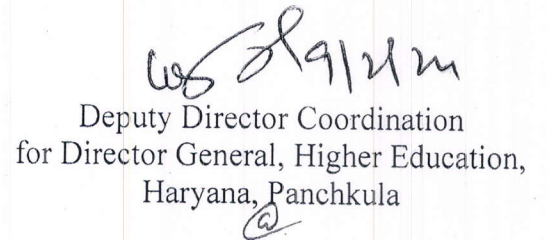 Deputy Director Coordination
for Director General, Higher Education,
Haryana, Panchkula